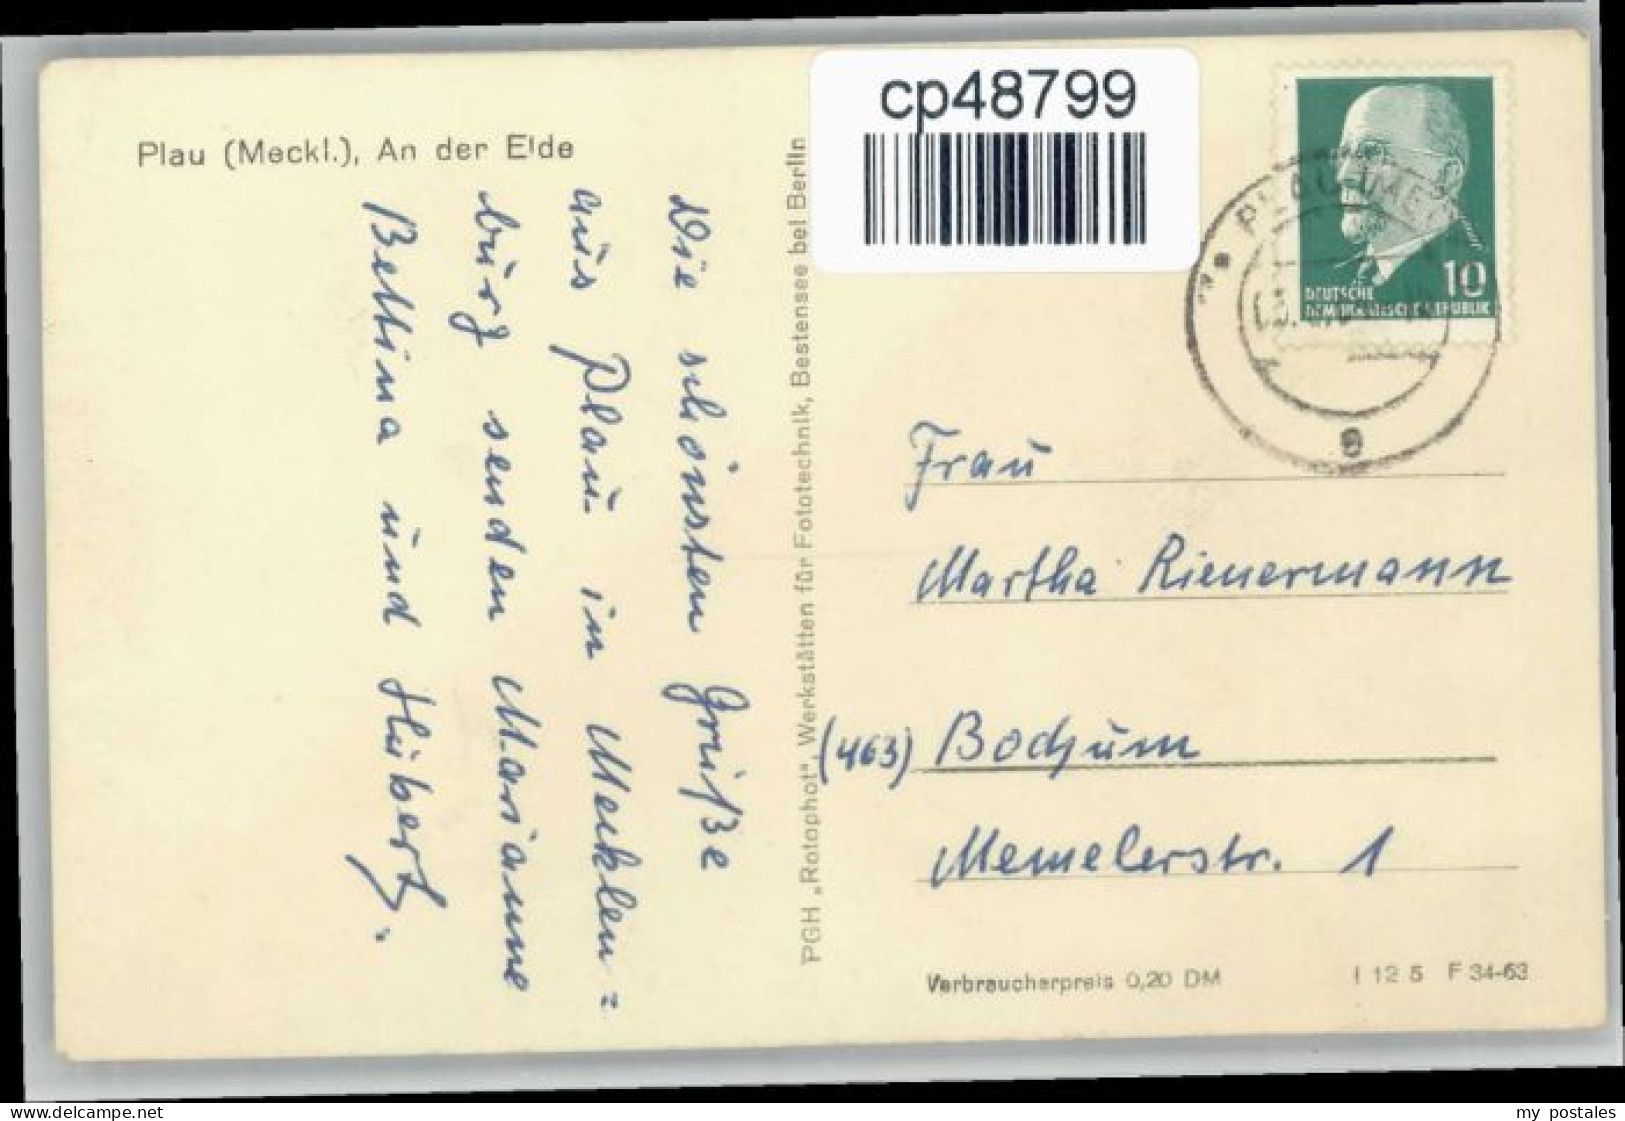 cp48799
Plau (Meckl.), An der Elde
Die schönsten Grüße
aus Plau in Mecklen=
burg senden Marianne
Bettina und Hubert.
PGH „Rotophot“, Werkstätten für Fototechnik, Bestensee bei Berlin
10
DEUTSCHE
DEMOKRATISCHE REPUBLIK
PLAU (MECK
Frau
Martha Rienermann
(463) Bochum
Memelerstr. 1
Verbraucherpreis 0,20 DM I 12 5 F 34-63
www.delcampe.net
my_postales